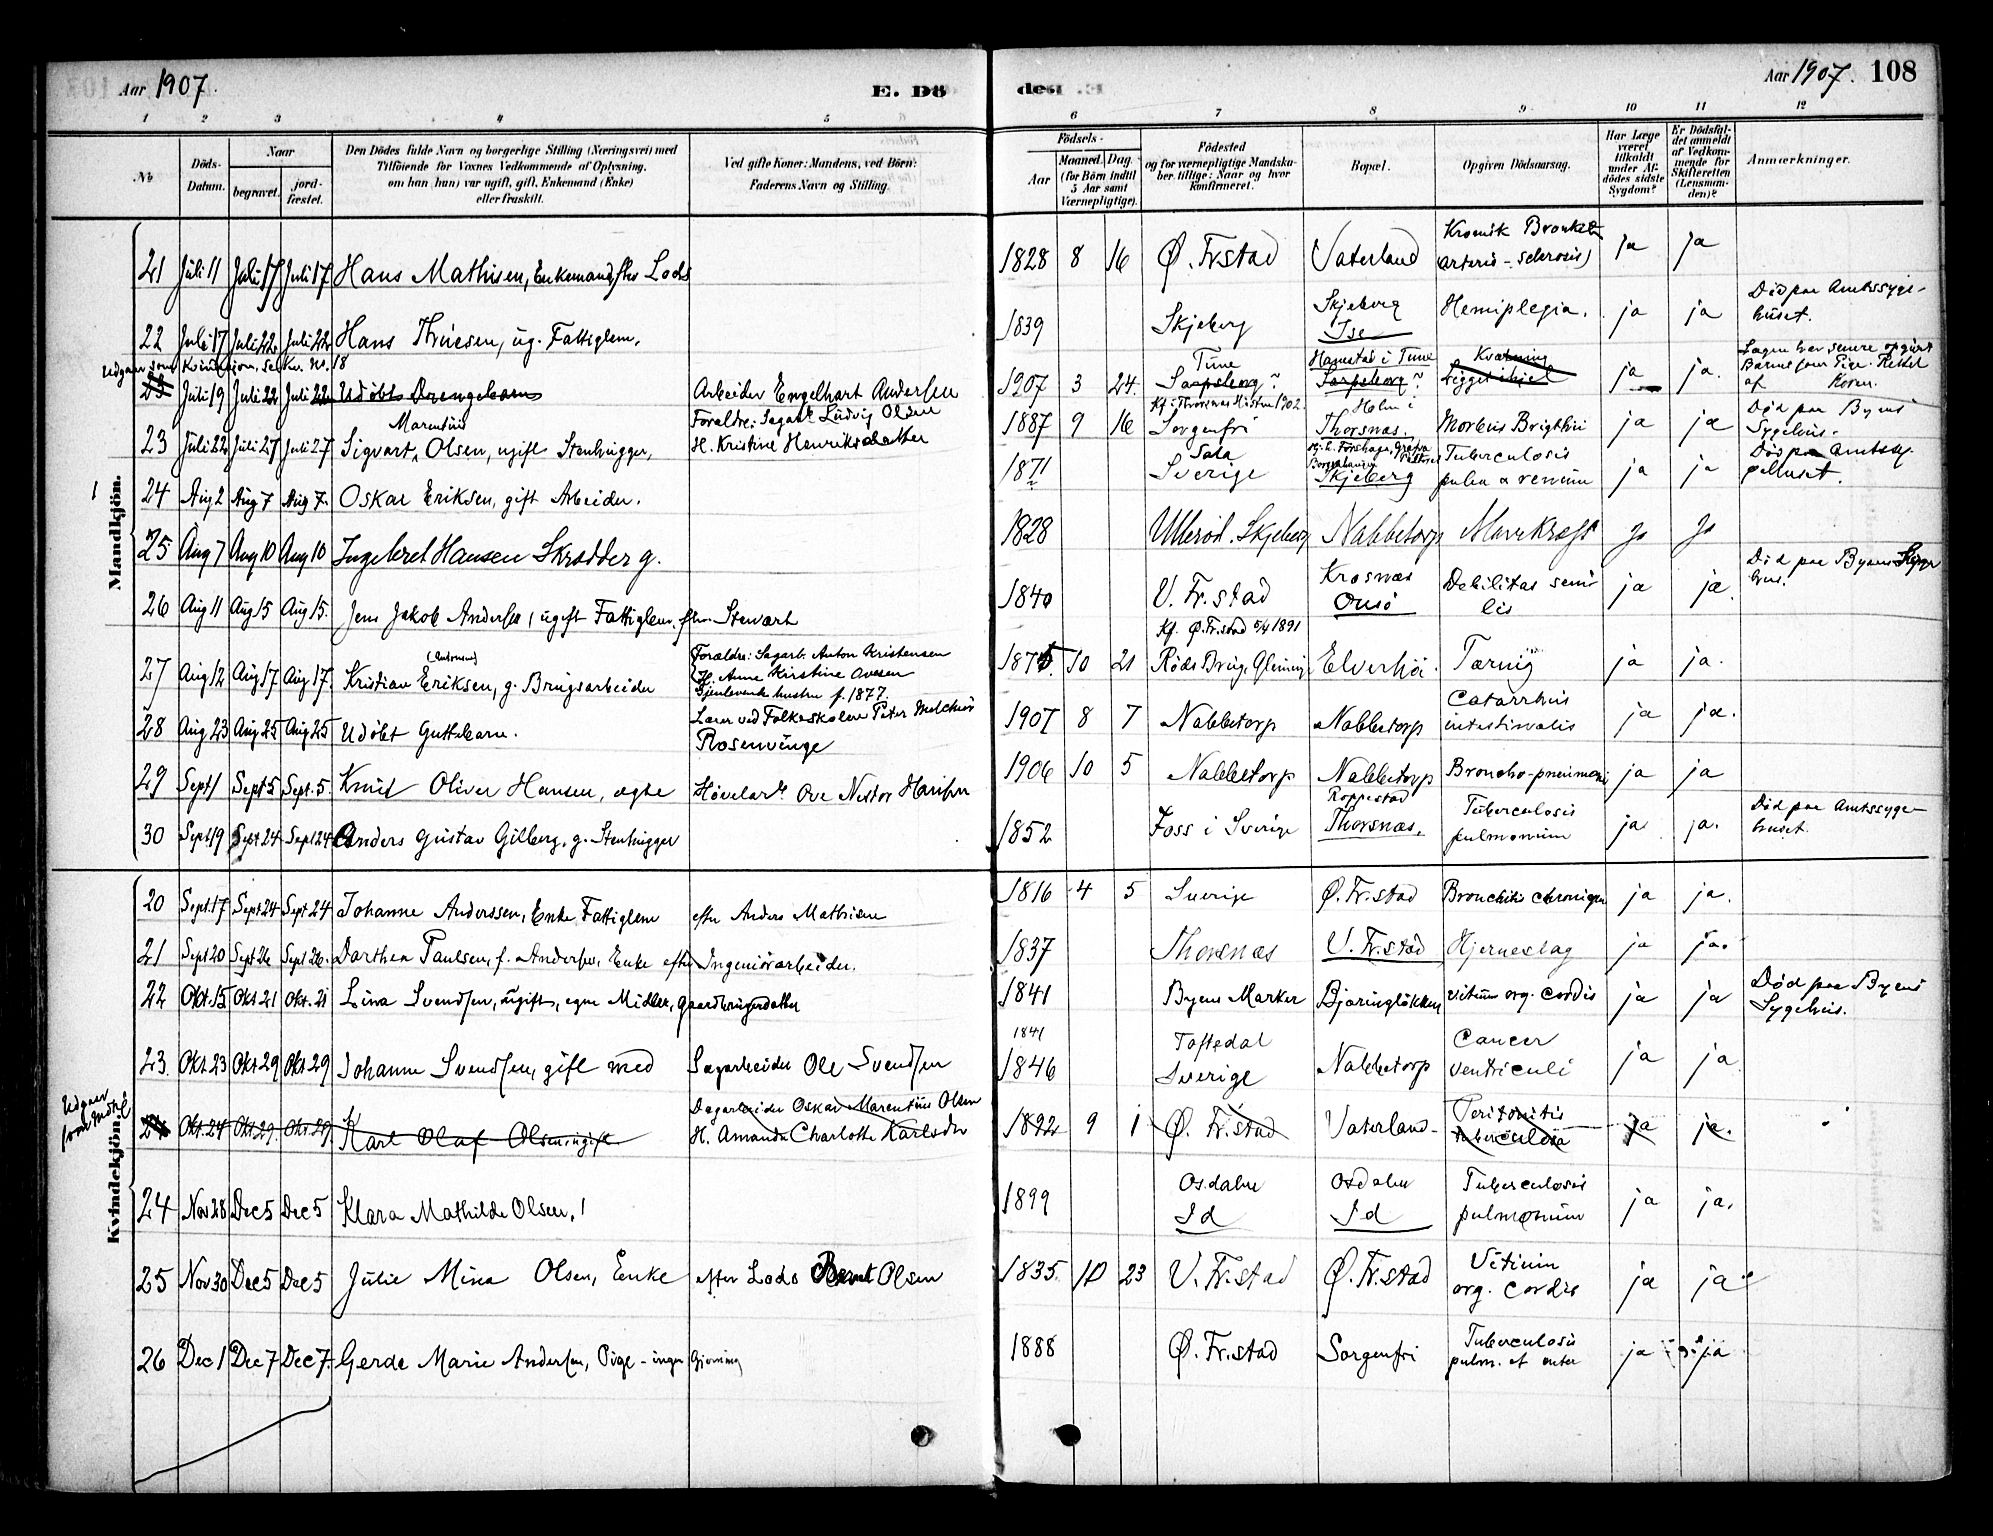 Aar 1907.
E. Dö
1 2 3 4 5
№
Döds-Datum.
Naar
begravet.
jord-fæstet.
Den Dödes fulde Navn og borgerlige Stilling (Næringsvei) med
Tilföiende for Voxnes Vedkommende af Oplysning,
om han (hun) var ugift, gift, Enkemand (Enke)
eller fraskilt.
Ved gifte Koner: Mandens, ved Börn:
Faderens Navn og Stilling.
Mandkjön.
21 Juli 11 Juli 17 Juli 17 Hans Mathisen, Enkemand, fhv Lods
22 Juli 17 Juli 22 Juli 22 Hans Thruesen, ug. Fattiglem.
Udgaar som Kvindekjøn, se No. 18
23 Juli 19 Juli 22 Juli 22 Udöbt Drengebarn Arbeider Engelhart Andersen
Marentius
Forældre: Sagarb. Ludvig Olsen
23 Juli 22 Juli 27 Juli 27 Sigvart Olsen, ugift Stenhugger, H. Kristine Henriksdatter
1 24 Aug 2 Aug 7 Aug 7. Oskar Eriksen, gift Arbeider.
25 Aug 7 Aug 10 Aug 10 Ingebret Hansen Skrædder g.
26 Aug 11 Aug 15 Aug 15. Jens Jakob Andersen, ugift Fattiglem, fhv. Stewart
Forældre: Sagarb. Anton Kristensen
27 Aug 12 Aug 17 Aug 17. Kristian Eriksen, g. Brugsarbeider H. Anne Kristine
Gjenlevende hustru f. 1877.
Lærer ved Folkeskolen Peter Melchior
28 Aug 23 Aug 25 Aug 25 Udöbt Guttebarn.
Rosenvinge
29 Sept 1 Sept 5 Sept. 5. Knut Oliver Hansen, ægte Hövelarb. Ove Nestor Hansen
30 Sept 19 Sept 24 Sept 24 Anders Gustav Gilberg, g. Stenhugger
Kvindekjön.
20 Sept. 17 Sept 24 Sept 24 Johanne Anderssen, Enke Fattiglem efter Anders Mathisen
21 Sept 20 Sept 26 Sept 26. Dorthea Paulsen, f. Andersen, Enke efter Ingeniörarbeider.
22 Okt. 15 Okt 21 Okt. 21 Lina Svendsen, ugift, egne Midler, gaardbrugerdatter
23. Okt. 23 Okt 29 Okt 29 Johanne Svendsen, gift med Sagarbeider Ole Svendsen
Udgaar som Mdkj.
Dagarbeider Oskar Marentius Olsen
24 Okt. 24 Okt 29. Okt. 29 Karl Olaf Olsen, ugift H. Amanda Charlotte Karlsdtr
24 Nov 28 Dec 5 Dec 5 Klara Mathilde Olsen,
25 Nov 30 Dec 5 Dec 5 Julie Mina Olsen, Enke efter Lods Bernt Olsen
26 Dec 1 Dec 7 Dec 7 Gerda Marie Andersen, Pige - ingen Gjerning
död E.
Aar 1907. 108
6 7 8 9 10 11 12
Födsels-
Aar
Maaned. Dag.
(for Börn indtil
5 Aar samt
Værnepligtige).
Födested
og for værnepligtige Mandska-
ber tillige: Naar og hvor
konfirmeret.
Bopæl.
Opgiven Dödsaarsag.
Har Læge
været
tilkaldt
under Af-
dödes sidste
Sygdom?
Er Dödsfal-
det anmeldt
af Vedkom-
mende for
Skifteretten
(Lensman-
den)?
Anmærkninger.
1828 8 16 Ø. Frstad Vaterland Kronisk Bronkit (arterio-sclerosis) ja ja
1839 Skjeberg Skjeberg Ise Hemiplegia. ja ja Död paa Amtssyge-
huset.
1907 3 24. Tune Sarpsborg? Hanestad i Tune Sarpsborg? Kvælning Ligget ihjel ja ja. Lægen har senere opgivet
Barnet som Pige. Rettet
af Koren.
Kf. i Thorsnes Höst 1902.
1887 9 16 Sorgenfri Holm i Thorsnæs. Morbus Brigthii ja ja Död paa Byens
Sygehus.
1871 Sala Sverige Skjeberg Tuberculosis pulm & renum ja ja Död paa Amtssy
gehuset.
1828 Ulleröd. Skjeberg Nabbetorp Mavekræft ja ja
1840 V. Fr.stad Kraanæs Onsö Debilitas seni
lis ja ja. Död paa Byens Syge
hus.
Kf. Ø. Fr.stad 5/4 1891
1875 10 21 Röds Brug, Glemminge Elverhöi. Tæring ja ja.
1907 8 7 Nabbetorp Nabbetorp Catarrhus
intestinalis ja ja.
1906 10 5 Nabbetorp Nabbetorp Broncho-pneumoni ja ja
1852 Foss i Sverige Roppestad Thorsnæs. Tuberculosis
pulmonum ja ja. Död paa Amtssyge-
huset.
1816 4 5 Sverige Ø. Fr.stad Bronchitis chronica ja ja.
1837 Thorsnæs V. Fr.stad Hjerneslag ja ja.
1841 Byens Marker Björinglökken vitium org. cordis ja ja Död paa Byens
Sygehus.
1841
1846 Toftedal
Sverige Nabbetorp Cancer
ventriculi ja ja
1892 9 1 Ø. Fr.stad Vaterland Peritonitis
tuberculosa ja ja.
1899 Osdalen
Id Osdalen
Id Tuberculosis
pulmonum ja ja.
1835 10 23 V. Fr.stad Ø. Fr.stad Vitium
org. cordis ja ja
1888 Ø. Fr.stad Sorgenfri Tuberculosis
pulm. et enter ja ja